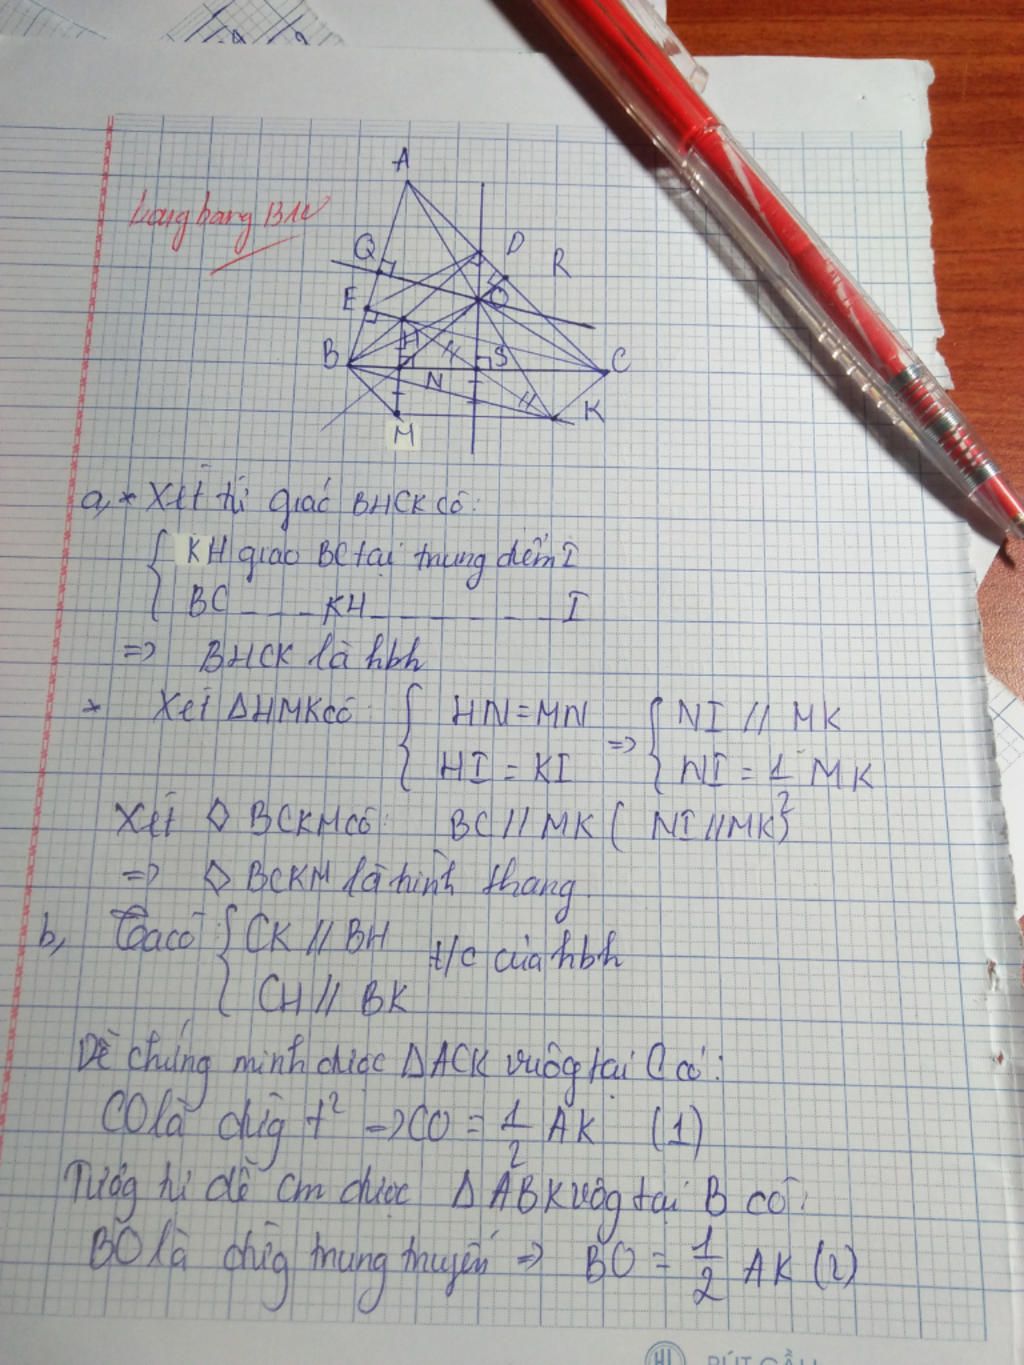 A
D
R
Q
O
E
H
B
S
C
N
K
M
a, * Xét tứ giác BHCK có:
KH giao BC tại trung điểm I
BC _ _ _ KH _ _ _ _ _ _ _ I
=> BHCK là hbh
* Xét ΔHMK có { HN = MN => { NI // MK
HI = KI NI = 1/2 MK
Xét ◇ BCKM có: BC // MK ( NI // MK)
=> ◇ BCKM là hình thang.
b, Ta có { CK // BH t/c của hbh
CH // BK
Dễ chứng minh được ΔACK vuôg tại C có:
CO là đườg t² -> CO = 1/2 AK (1)
Tươg tự dễ cm được Δ ABK vuôg tại B có:
BO là đườg trung truyến => BO = 1/2 AK (2)